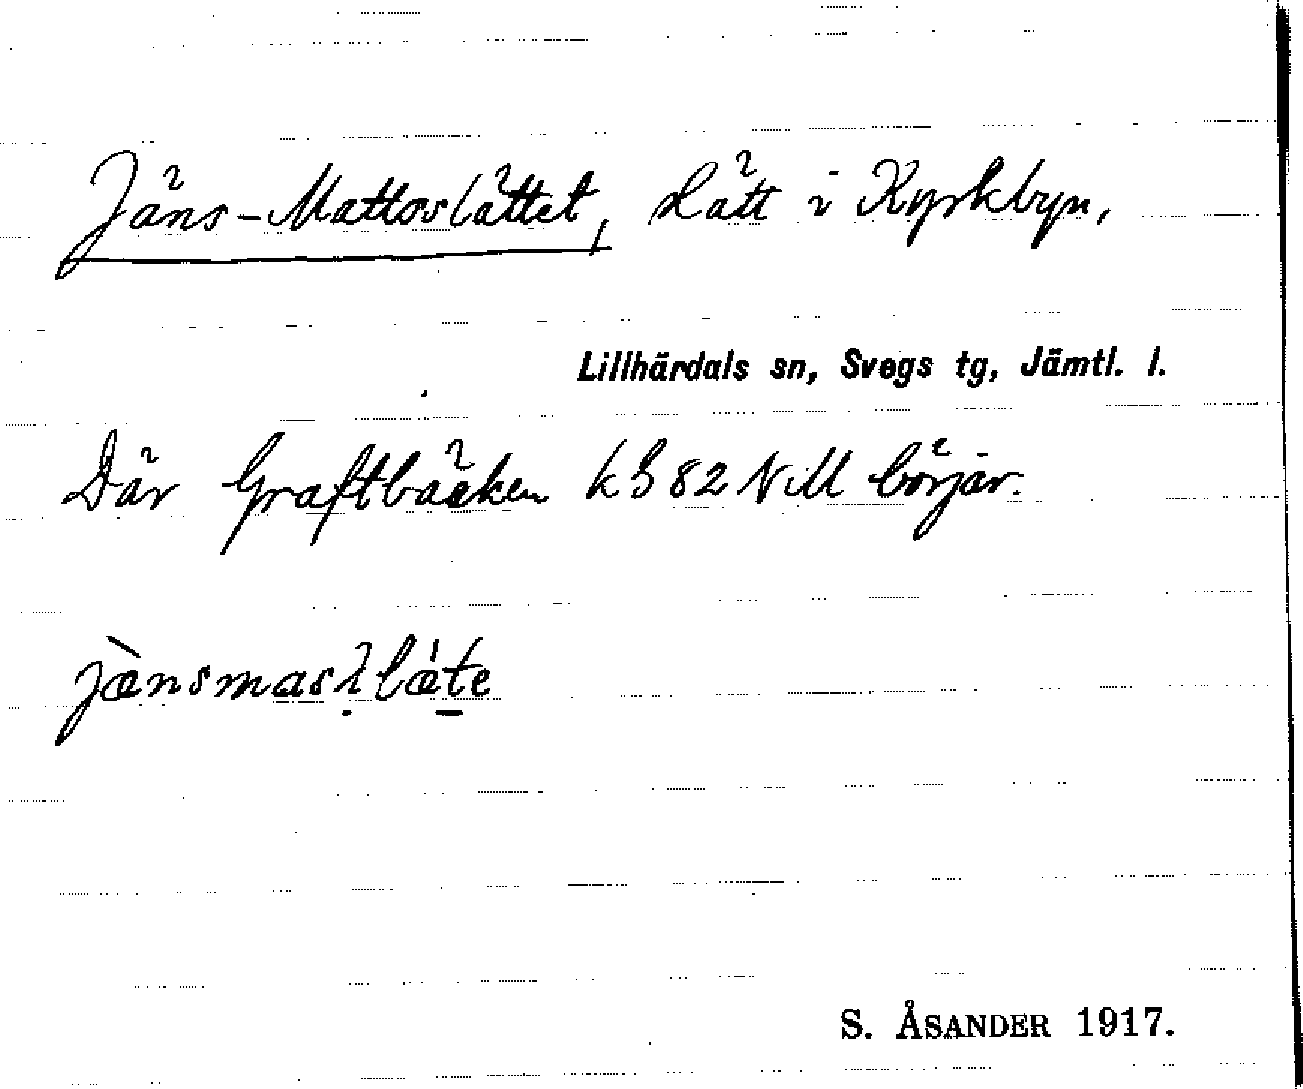 Jäns-Mattoslättet, Lätt i Kyrkbyn,
Lillhärdals sn, Svegs tg, Jämtl. l.
Där Graftbäcken kB 82 N ill börjar.
S. ÅSANDER 1917.